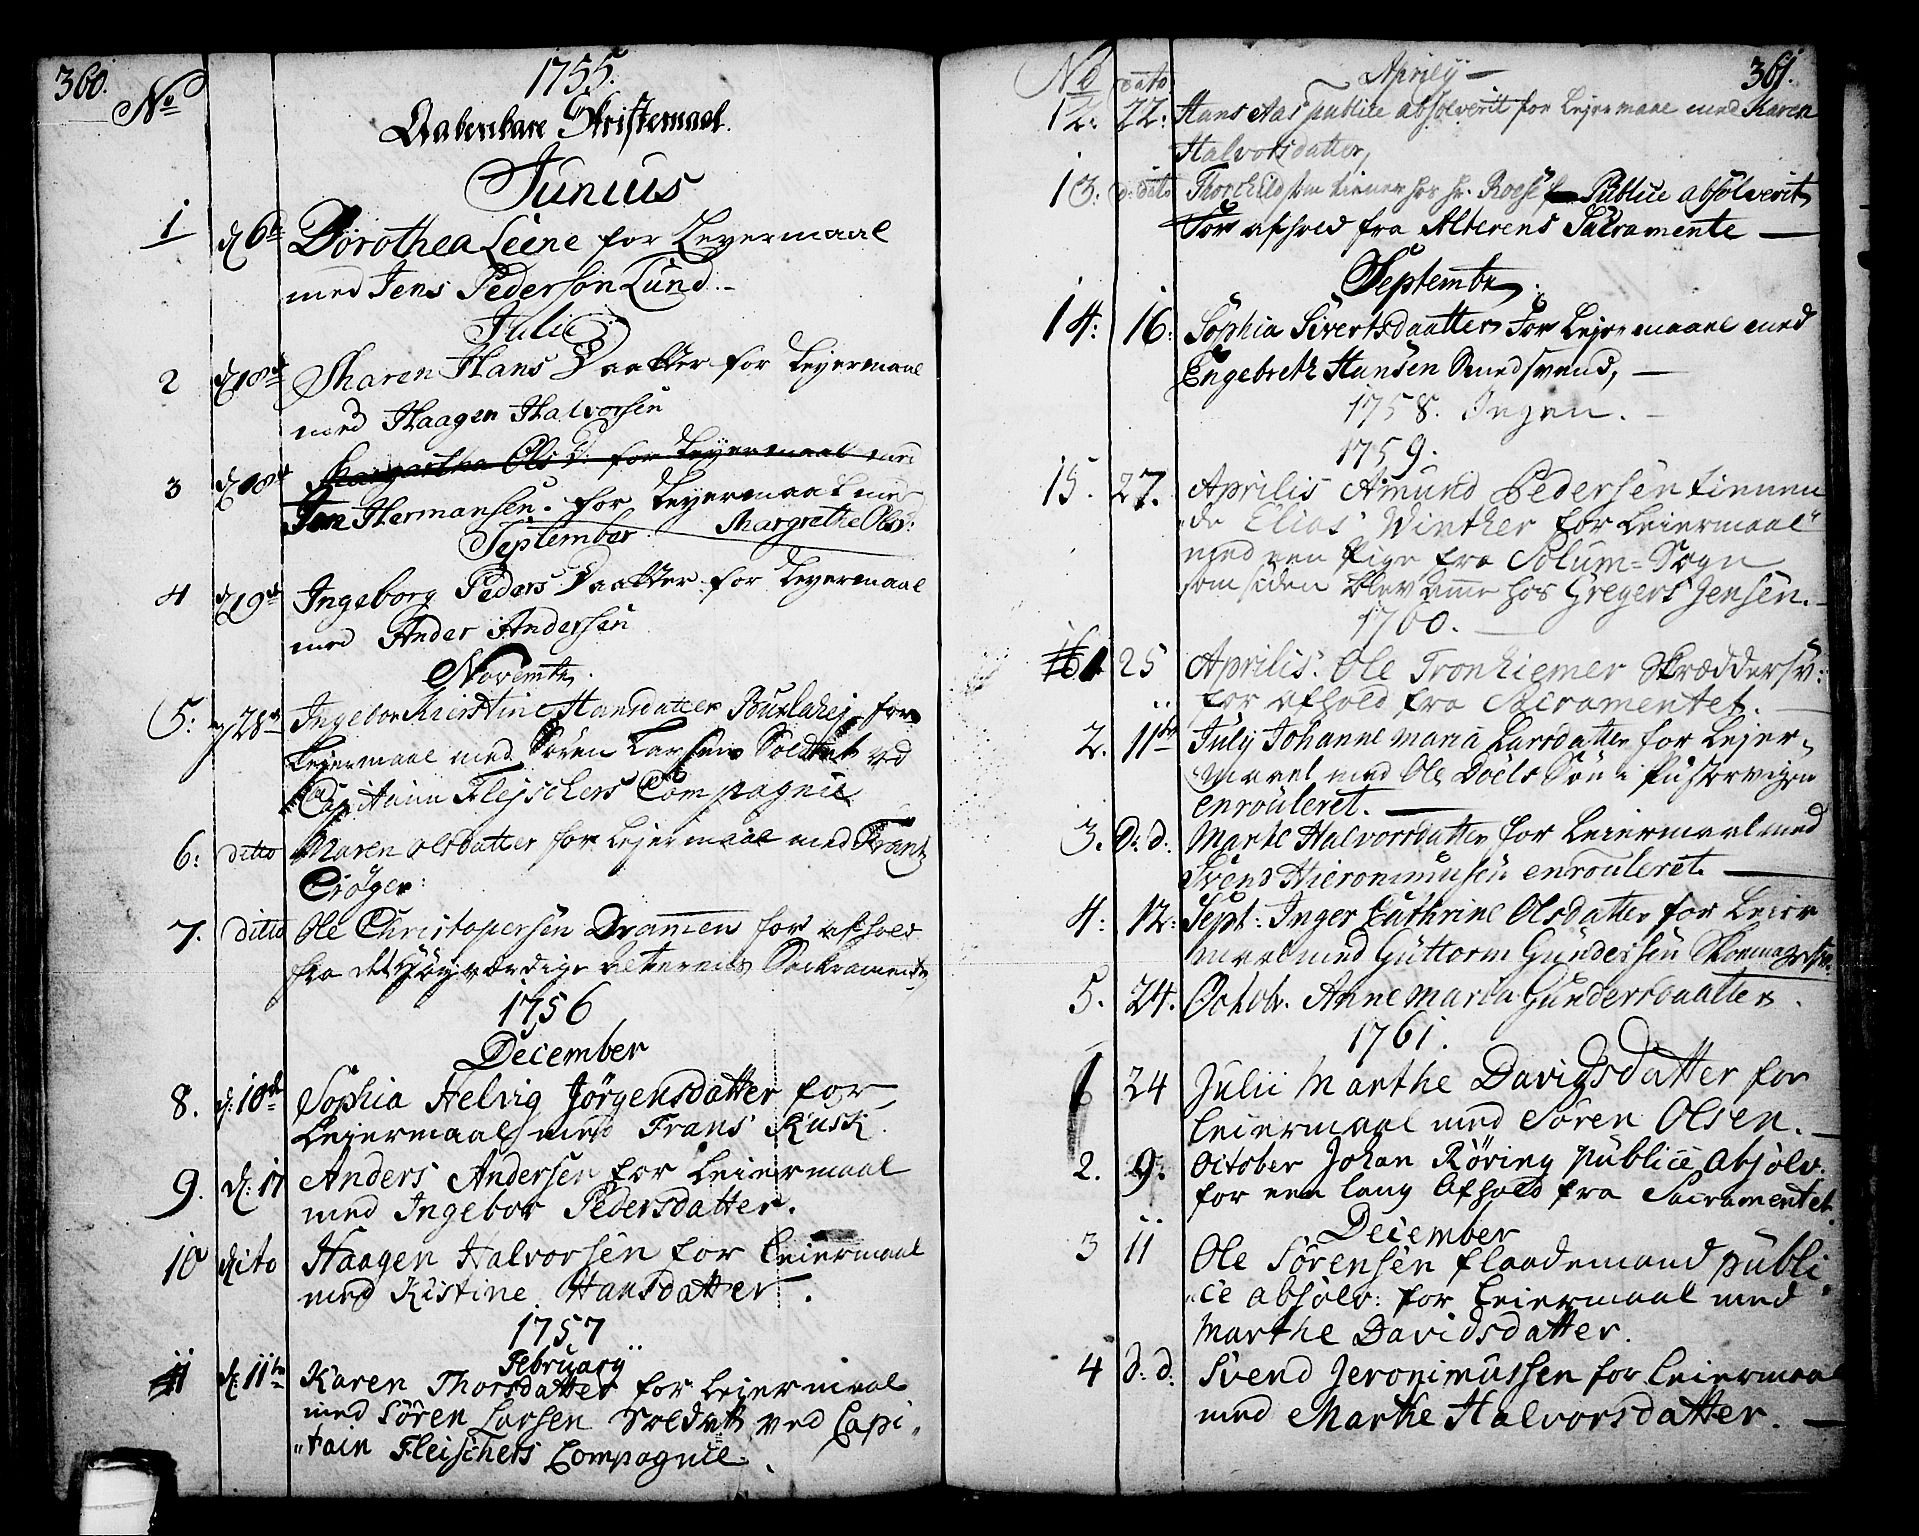 360.
No
1755.
Aabenbare Skristemaal.
Junius
1 d 6te Dorothea Leene for Leyermaal
med Jens Pederson Lund.
Julii
2 d 18de Karen Hans Daatter for Leyermaal
med Haagen Halvorsen
3 d 18de Margaretha Ols D. for Leyermaal med
Jon Hermansen. for Leyermaal med
Margrethe Olsd:
September.
4 d 19de Ingeborg Peders Daatter for Leyermaal
med Ander Andersen
Novembr.
5: d 28de Ingebor Kierstine Hansdatter for
Leiermaal med Sören Larsen Soldat ved
Capitain Flejschers Compagnie
6: ditto Maren Olsdatter for Lejermaal med Frantz
Cröger:
7. ditto Ole Christopersen Dramen for afhold
fra det Høyværdige alterens Sackramente
1756
December
8. d: 10de Sophia Helvig Jörgensdatter for
Leiermaal med Frans Kusk.
9. d: 17 Anders Andersen for Leiermaal
med Ingebor Pedersdatter.
10 dito Haagen Halvorsen for Leiermaal
med Kistine Hansdatter.
1757
February
11 d: 11te Karen Thorsdatter for Leiermaal
med Sören Larsen Soldat ved Capi„
„tain Fleischers Compagnie.
361.
No dato Aprily
12. 22. Hans Aas publice absolverit for Lejermaal med Karen
Halvorsdatter,
13. d: dito Thorkild som tiener hos hr. Roese Publice absolverit
For afhold fra Alterens Sacramente
Septembr.
14. 16. Sophia Sivertsdaatter For Lejermaal med
Engebreth Hansen Smedsvend,
1758. Ingen.
1759.
15. 27. Aprilis Amund Pedersen tienen
„de Elias Winther for Leiermaal
med een Pige fra Solum=Sogn
som siden blev Amme hos Gregers Jensen.
1760.
16 1 25 Aprilis. Ole Tronhiemer Skræddersv:
for afhold fra Sacramentet.
2. 11te July Johanne Maria Larsdatter for Lejer„
maal med Ole Boels Sön i
enrouleret.
3. D: d: Marte Halvorsdatter for Leiermaal med
Svend Hieronimusen enrouleret.
4. 12. Sept: Inger Cathrine Olsdatter for Leier
maal med Guttorm Gundersen Skomagersv.
5. 24. Octob. Anne Maria Gundersdaatter.
1761.
1 24 Julii Marthe Davidsdatter for
Leiermaal med Sören Olsen.
2. 9. October Johan Röring publice absolv:
for een lang Afhold fra Sacramentet.
December
3 11 Ole Sörensen flaademand publi
„ce absolv: for Leiermaal med
Marthe Davidsdatter.
4 d: d: Svend Jeronimussen for Leiermaal
med Marthe Halvorsdatter.